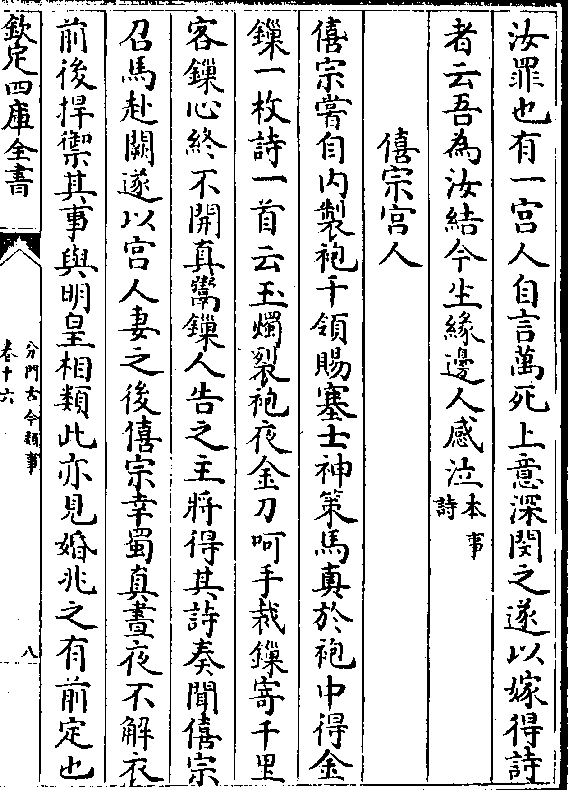 汝罪也有一宮人自言萬死上意深閔之遂以嫁得詩
者云吾為汝結今生緣邊人感泣本事詩
僖宗宮人
僖宗嘗自内製袍千領賜塞士神策馬真於袍中得金
鏁一枚詩一首云玉燭裂袍夜金刀呵手裁鏁寄千里
客鏁心終不開真鬻鏁人告之主將得其詩奏聞僖宗
召馬赴闕遂以宮人妻之後僖宗幸蜀真晝夜不解衣
前後捍禦其事與明皇相類此亦見婚兆之有前定也
欽定四庫全書
分門古今類事
卷十六
八